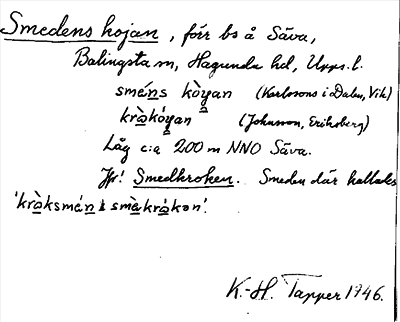 Smedens kojan, förr bs å Säva,
Balingsta sn, Hagunda hd, Upps. l.
smén̲s kòy̲an (Karlssons i Dalen, Vik)
krà̲kóy̲an (Johnsson, Eriksberg)
Låg c:a 200 m NNO Säva.
Jfr! Smedkroken. Smeden där kallades
'krà̲ksmén̲ i smà̲krá̲kən'.
K.-H. Tapper 1946.